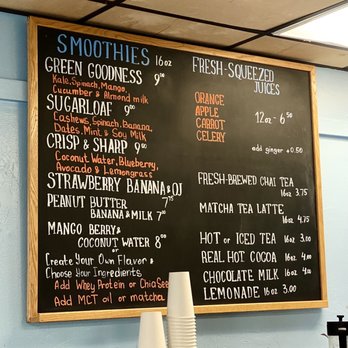 SMOOTHIES 16oz
GREEN GOODNESS 9.00
Kale, Spinach, Mango,
Cucumber & Almond milk
SUGARLOAF 9.00
Cashews, Spinach, Banana,
Dates, Mint & Soy Milk
CRISP & SHARP 9.00
Coconut Water, Blueberry,
Avocado & Lemongrass
STRAWBERRY BANANA & OJ
PEANUT BUTTER
BANANA & MILK 7.75
MANGO BERRY &
COCONUT WATER 8.00
or
Create Your Own Flavor &
Choose Your Ingredients
Add Whey Protein or Chia See
Add MCT oil or matcha
FRESH-SQUEEZED
JUICES
ORANGE
APPLE
CARROT
CELERY
12oz - 6.50
add ginger + 0.50
FRESH-BREWED CHAI TEA
16oz 3.75
MATCHA TEA LATTE
16oz 4.75
HOT or ICED TEA 16oz 3.00
REAL HOT COCOA 16oz 4.00
CHOCOLATE MILK 16oz 4.00
LEMONADE 16oz 3.00